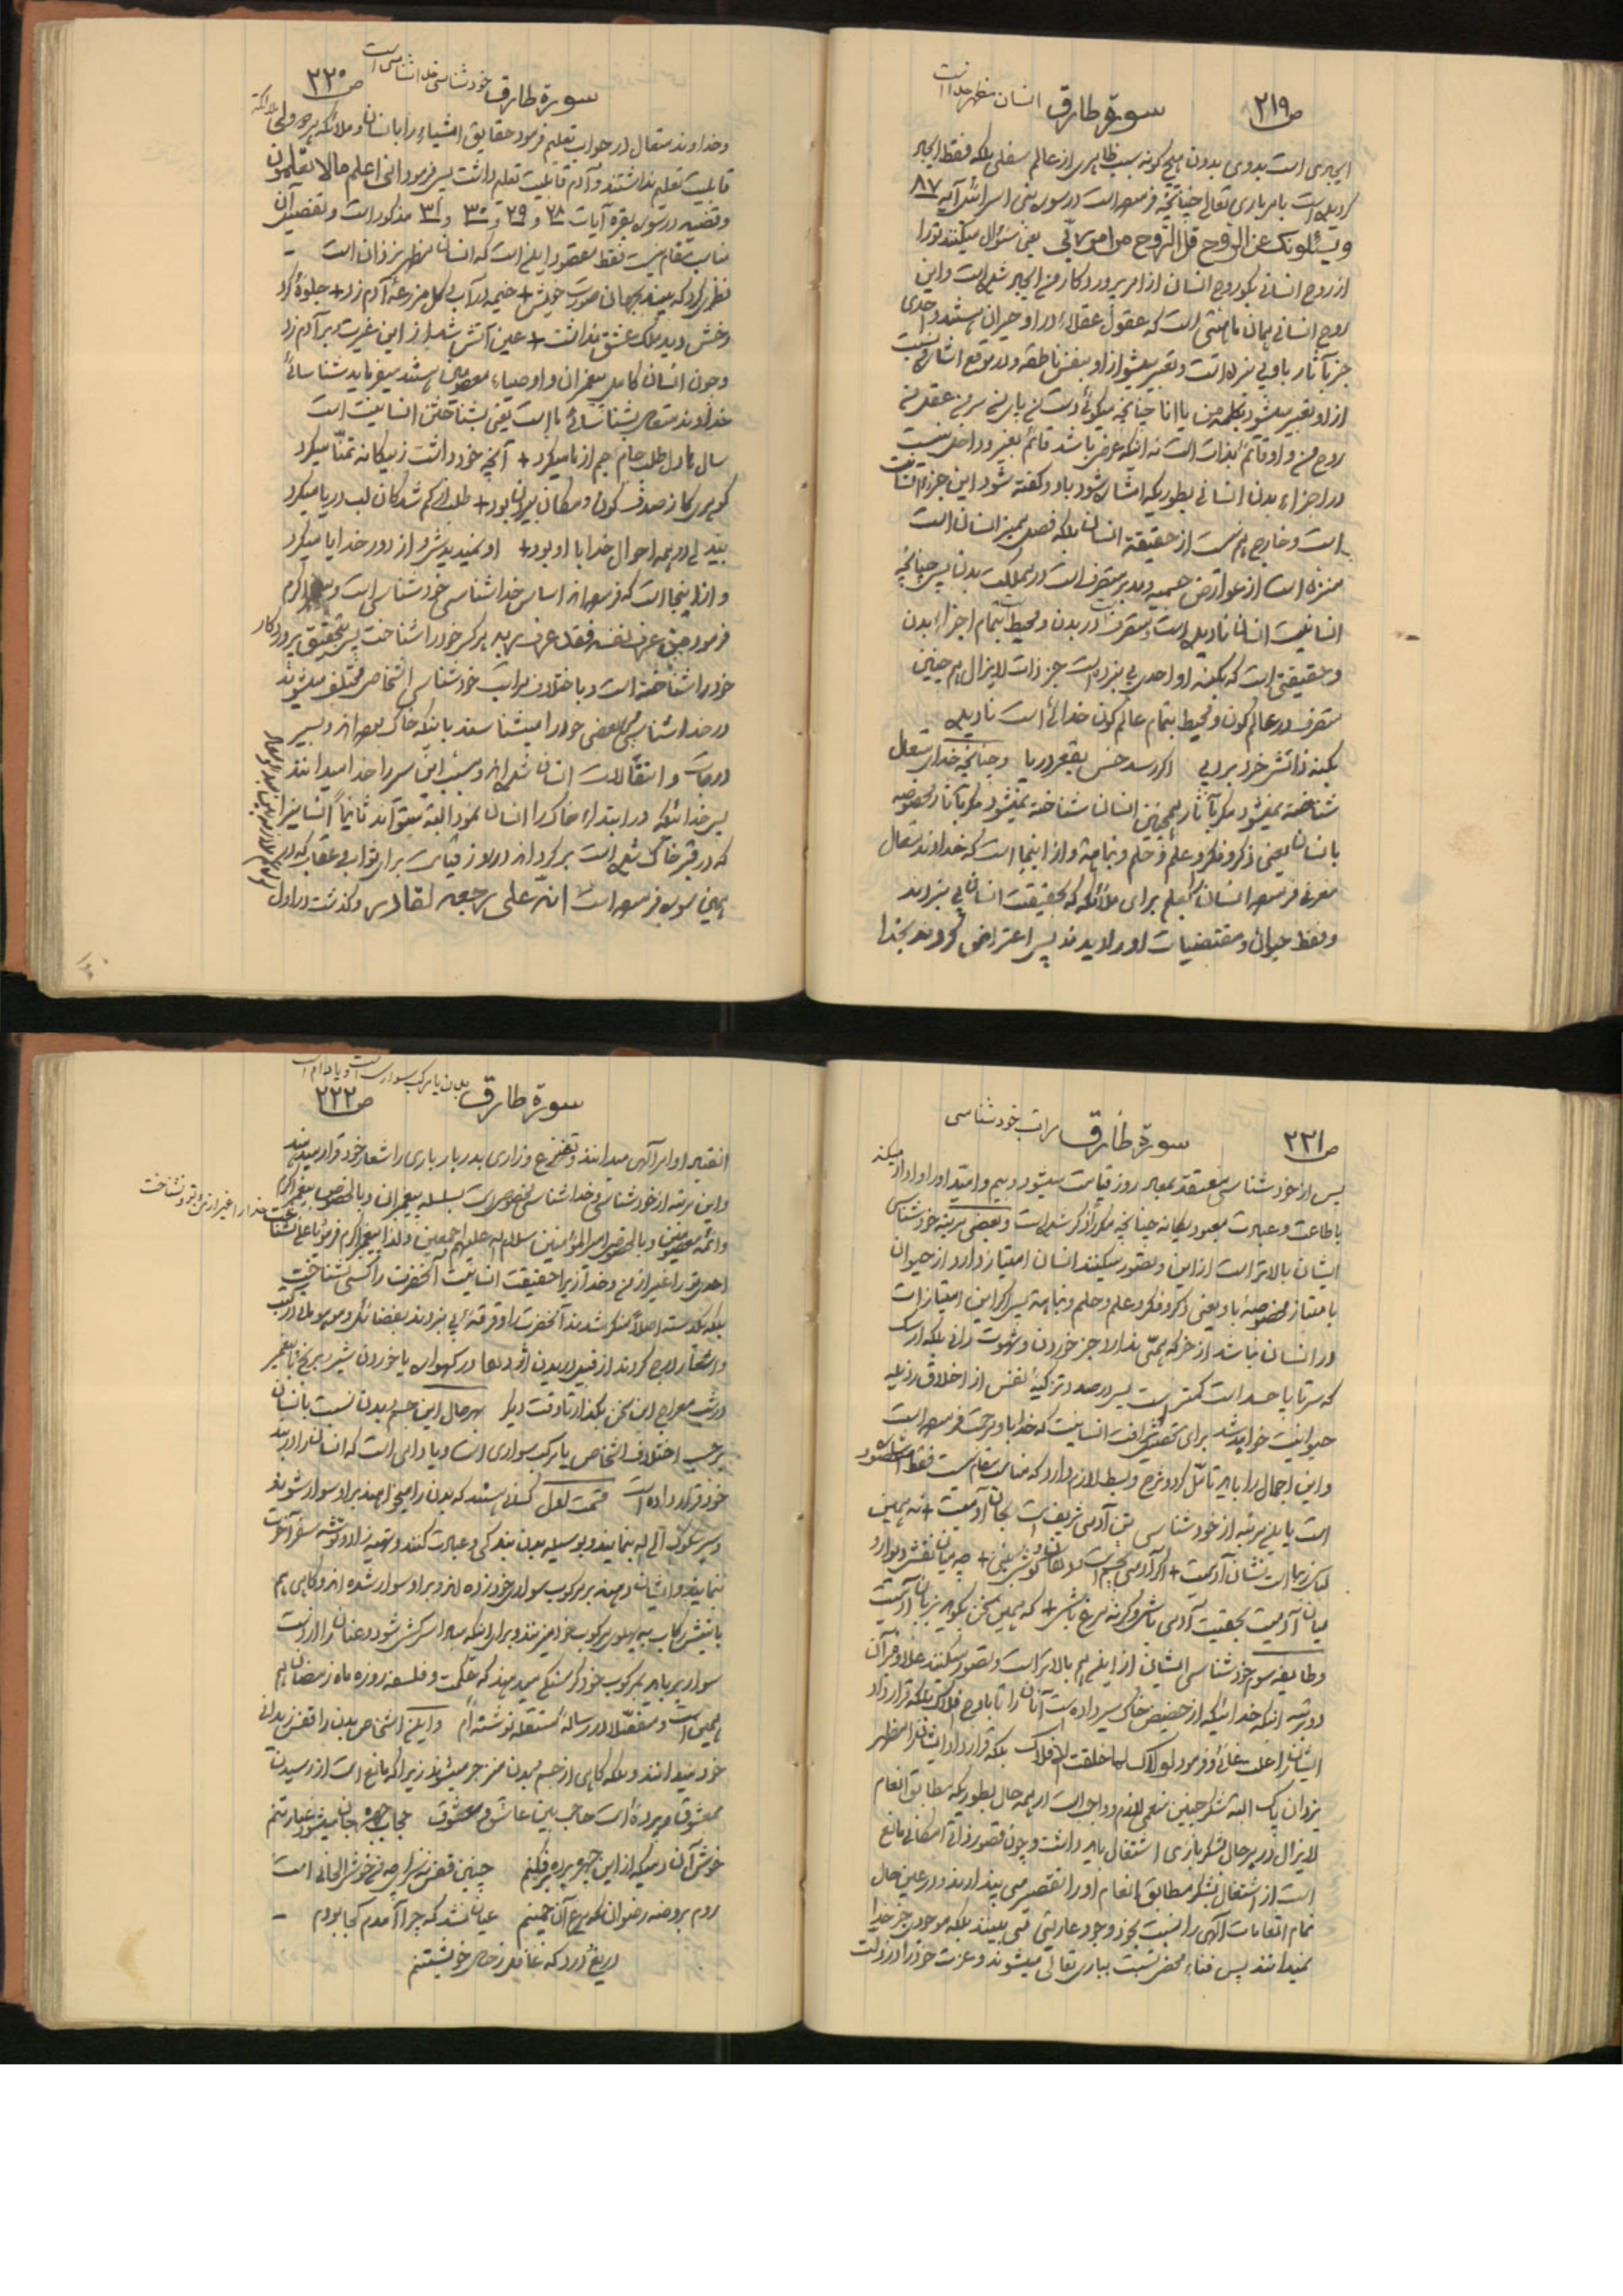 ص۲۱۹ سورة طارق انسان مظهر خدا است
ایجری است بدوی بدون هیچ گونه سبب ظاهری از عالم سفلی بلکه فقط ایجاد
گردیده است بامر باری تعالی چنانچه فرموده است در سوره بنی اسرائیل آیه ۸۷
ویسئلونک عن الروح قل الروح من امر ربّی یعنی سئوال میکنند تو را
از روح انسانی بگو روح انسان از امر پروردگار من ایجاد شده است و این
روح انسانی همان مامنشی است که عقول عقلاء در او حیران هستند و احدی
جز بآثار باو پی نبرده است و تعبیر میشود از او بنفس ناطقه و در موقع اشاره و نسبت
از او تعبیر میشود بکلمه من یا انا چنانچه میگوئی دست من پای من سر من عقل من
روح من و او قائم بذات است نه اینکه عرض باشد قائم بغیر و داخل نیست
در اجزاء بدن انسانی بطوریکه اشاره شود باو و گفته شود این جزء انسان
است و خارج هم نیست از حقیقة انسان بلکه فصل ممیز انسان است
منزه است از عوارض جسمیه و مدبر و متصرف است در مملکت بدن پس چنانچه
انسانیت انسان نادیده است و متصرف است در بدن و محیط است بتمام اجزاء بدن
و حقیقتی است که بکنه او احدی پی نبرده است جز ذات لایزال هم چنین
متصرف در عالم کون و محیط بتمام عالم کون خدائی است نادیده
بکنه ذاتش خرد برد پی اگر رسد خس بقعر دریا و چنانچه خدای متعال
شناخته نمیشود مگر بآثار همچنین انسان شناخته نمیشود مگر بآثار مخصوصه
بانسان یعنی ذکر و فکر و علم و حلم و نباهة و از اینجا است که خداوند متعال
معرفی فرموده انسان را بعلم برای ملائکه که بحقیقت انسان پی نبردند
و فقط حیوان و مقتضیات او را دیدند پس اعتراض کردند بخدا
ص۲۲۰ سورة طارق خودشناسی خداشناسی است
و خداوند متعال در جواب تعلیم فرمود حقایق اشیاء را بانسان و ملائکه هر دو ولی ملائکه
قابلیت تعلیم نداشتند و آدم قابلیت تعلیم داشت پس فرمود انی اعلم مالا تعلمون
و قضیه در سوره بقره آیات ۲۸ و ۲۹ و ۳۰ و ۳۱ مذکور است و تفصیل آن
مناسب مقام نیست فقط مقصود اینست که انسان مظهر یزدان است -
نظری کرد که بیند بجهان صورت خویش + خیمه در آب و گل مزرعه آدم زد + جلوۀ کرد
رخش دید ملک عشق نداشت + عین آتش شد از این غیرت و بر آدم زد
و چون انسان کامل پیغمبران و اوصیاء معصومین هستند میفرماید شناسائی
خداوند متعال بشناسائی ما است یعنی بشناختن انسانیت است
سال ها دل طلب جام جم از ما میکرد + آنچه خود داشت ز بیگانه تمنّا میکرد
گوهری کز صدف کون و مکان بیرون بود + طلب از گم شدگان لب دریا میکرد
بیدلی در همه احوال خدا با او بود + او نمیدیدش و از دور خدایا میکرد
و از اینجا است که فرموده اند اساس خداشناسی خودشناسی است و پیغمبر اکرم
فرمود من عرف نفسه فقد عرف ربه هر کس خود را شناخت پس بتحقیق پروردگار
خود را شناخته است و باختلاف مراتب خودشناسی اشخاص مختلف میشوند
در خداشناسی بعضی خود را میشناسند باینکه خاک بوده اند و بسیر
درجات و انتقالات انسان شده اند و مسبب این سیر را خدا میدانند
پس خدائیکه در ابتداء خاک را انسان نمود البته میتواند ثانیاً انسانیرا
که در قبر خاک شده است برگرداند در روز قیامت برای ثواب و عقاب که در
همین سوره فرموده است انه علی رجعه لقادر و گذشت در اول
ص۲۲۱ سورة طارق مراتب خودشناسی
پس از خودشناسی معتقد بمعاد روز قیامت میشود و بیم و امید او را وادار میکند
باطاعت و عبادت معبود یگانه چنانچه مکرر ذکر شده است و بعضی مرتبه خودشناسی
ایشان بالاتر است از این و تصور میکنند انسان امتیاز دارد از حیوان
بامتیاز مخصوصه باو یعنی ذکر و فکر و علم و حلم و نباهة پس اگر این امتیازات
در انسان نباشد از خر که همّتی ندارد جز خوردن و شهوت رانی بلکه از سگ
که سر تا پا حسد است کمتر است پس در صدد تزکیه نفس از اخلاق رذیله
حیوانیت خواهد شد برای تحصیل شرافت انسانیت که خدا باو مرحمت فرموده است
و این اجمال را باید تأمّل کرد و شرح و بسط لازم دارد که مناسب مقام نیست فقط اشاره مقصود
است باین مرتبه از خودشناسی تن آدمی شریف است بجان آدمیت + نه همین
لباس زیبا است نشان آدمیت + اگر آدمی بچشم است و دهان و گوش و بینی + چه میان نقش دیوار و
میان آدمیت بحقیقت آدمی باش وگرنه مرغ باشد + که همین سخن بگوید بزبان آدمیت
و طایفه سوم خودشناسی ایشان از این هم بالاتر است و تصور میکنند علاوه بر آن
دو مرتبه اینکه خدائیکه از حضیض خاک سیر داده است آنان را تا باوج افلاک بلکه قرار داد
ایشان را علت غائی و فرمود لولاک لما خلقت الافلاک بلکه قرار داد ایشانرا مظهر
یزدان پاک البته شکر چنین منعمی لازم و واجب است در همه حال بطوریکه مطابق انعام
لایزال در هر حال بشکر باری اشتغال باید داشت و چون قصور ذاتی امکانی مانع
است از اشتغال بشکر مطابق انعام او را تقصیر می پندارند و در عین حال
تمام انعامات الهی را نسبت بخود وجود عاریتی می بینند بلکه موجودی جز خدا
نمیدانند پس فناء محض نسبت بباری تعالی میشوند و عزت خود را در ذلت
ص۲۲۲ سورة طارق بدن یا مرکب سواری است و یا دام است
انقیاد اوامر آلهی میدانند و تضرع و زاری بدربار باری را شعار خود قرار میدهند
و این مرتبه از خودشناسی و خداشناسی مخصوص است بسلسله پیغمبران و بالخصوص پیغمبر اکرم
و ائمه معصومین و بالخصوص امیرالمؤمنین سلام الله علیهم اجمعین و لذا پیغمبر اکرم فرمود یا علی نشناخت خدا را غیر از من و تو و نشناخت
احدی تو را غیر از من و خدا زیرا حقیقت انسانیت آنحضرت را کسی نشناخت
بلکه یک دسته اصلاً منکر شدند آنحضرت را و فرقۀ پی نبردند بفضائل و موهوماتی در کتب
و اشعار درج کردند از قبیل دریدن اژدها در گهواره یا خوردن شیر برنج با پیغمبر
در شب معراج این سخن بگذار تا وقت دیگر بهر حال این جسم و بدن نسبت بانسان
بر حسب اختلاف اشخاص یا مرکب سواری است و یا دامی است که انسانرا در بند
خود قرار داده است قسمت اول کسانی هستند که بدن را میخواهند بر او سوار شوند
و سیر و سلوک الی الله بنمایند و بوسیله بدن بندگی و عبادت کنند و تهیه زاد و توشه سفر آخرت
بنمایند و ایشان دهنه بر مرکب سواری خود زده اند و بر او سوار شده اند و گاهی هم
بانیش رکاب به پهلوی مرکوب خود میزنند و برای اینکه مبادا سرکش شود و عنان را از دست
سوار برباید بمرکوب خود گرسنگی میدهند که حکمت و فلسفه روزه ماه رمضان هم
همین است و مفصّلا در رساله مستقله نوشته ام و این اشخاص بدن را قفس زندانی
خود میدانند و بلکه گاهی از جسم و بدن منزجر میشوند زیرا که مانع است از رسیدن
بمعشوق و پرده است حاجب بین عاشق و معشوق حجاب چهره جان میشود غبار تنم
خوش آن دمیکه از این چهره پرده برفکنم چنین قفس نه سزای چو من خوش الحانی است
روم بروضه رضوان که مرغ آن چمنم عیان نشد که چرا آمدم کجا بودم -
دریغ و درد که غافل ز حال خویشتنم